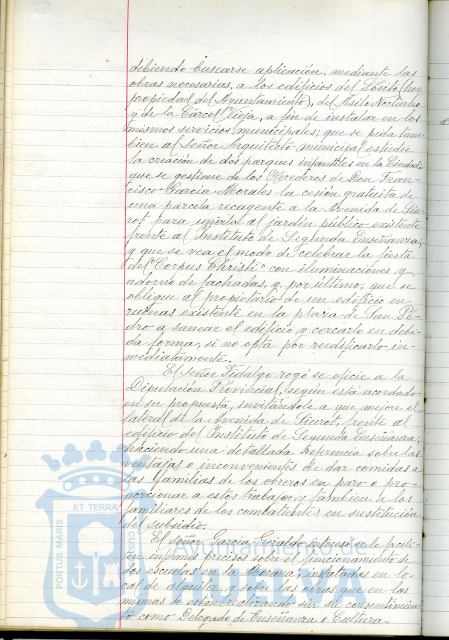 debiendo buscarse aplicación, mediante las
obras necesarias, a los edificios del Pósito (hoy
propiedad del Ayuntamiento), del Asilo Nocturno
y de la Cárcel Vieja, a fin de instalar en los
mismos servicios municipales; que se pida tam-
bien al Señor Arquitecto municipal estudie
la creación de dos parques infantiles en la Ciudad;
que se gestione de los Herederos de Don Fran-
cisco García Morales la cesión gratuita de
una parcela recayente a la Avenida de Siu-
rot, para unirla al jardín público existente
frente al Instituto de Segunda Enseñanza;
y que se vea el modo de celebrar la fiesta
del "Corpus Christi" con iluminaciones y
adorno de fachadas, y, por último, que se
obligue al propietario de un edificio en
ruinas existente en la plaza de San Pe-
dro a sanear el edificio y cercarlo en debi-
da forma, si no opta por reedificarlo in-
mediatamente.
El Señor Fidalgo rogó se oficie a la
Diputación Provincial, según está acordado
en su propuesta, invitándole a que mejore el
lateral de la Avenida de Siurot, frente al
edificio del Instituto de Segunda Enseñanza;
haciendo una detallada referencia sobre las
ventajas o inconvenientes de dar comidas a
las familias de los obreros en paro o pro-
porcionar a estos trabajo, y tambien a los
familiares de los combatientes en sustitución
del subsidio.
El señor García Geraldo interesó se le facili-
ten informes precisos sobre el funcionamiento de
dos escuelas en la Morana, instaladas en lo-
cal de alquiler, y sobre las obras que en las
mismas se están realizando sin su consentimien-
to como Delegado de Enseñanza o Cultura.
PORTUS MARIS
ET TERRAE
CUSTODIA
Ayuntamiento de